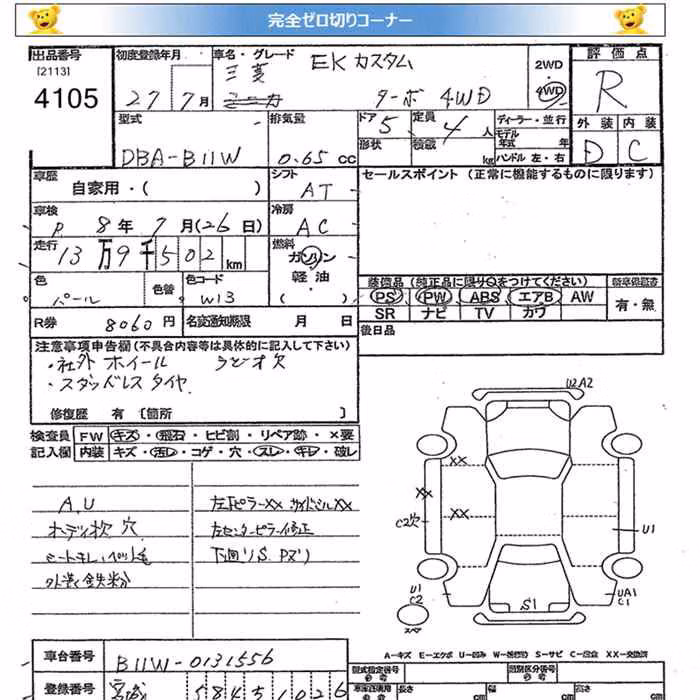 完全ゼロ切りコーナー
出品番号 初度登録年月 車名・グレード 評価点
[2113] 三菱 EK カスタム 2WD
4105 27年 7月 ターボ 4WD 4WD R
型式 排気量 ドア 5 定員 4人 ディーラー・並行 外装 内装
モデル年式 年
DBA-B11W 0.65 cc 形状 積載 kg ハンドル 左・右 D C
車歴 シフト セールスポイント (正常に機能するものに限ります)
自家用・( ) AT
車検 冷房
P. 8年 7月(26日) AC
走行 燃料
13万9千502km ガソリン
色 色替 色コード 軽油
パール W13 ( ・ )
装備品 (純正品に限り○をつけてください) 新車保証書
PS PW ABS エアB AW 有・無
SR ナビ TV カワ
R券 8060円 名変通知期限 月 日
後日品
注意事項申告欄(不具合内容等は具体的に記入して下さい)
・社外 ホイール ラジオ欠
・スタッドレスタイヤ
修復歴 有 〔箇所 〕
検査員 FW キズ・飛石・ヒビ割・リペア跡・×要
記入欄 内装 キズ・汚レ・コゲ・穴・スレ・キレ・破レ
A.U 左FピラーXX サイドシルXX
ボディ状 穴 左センターピラー修正
シートキレ、ペット毛 下廻り S、Pズリ
外装 鉄粉
U2A2
XX
XX
XX
C2穴
U1
U1
C2
UA1
C1
S1
スペア
A-キズ E-エクボ U-凹み W-補修跡 S-サビ C-腐食 XX-交換済
車台番号 B11W-0131556
型式指定番号 類別区分番号
登録番号 宮城 584 51026
長さ cm 幅 cm 高さ cm